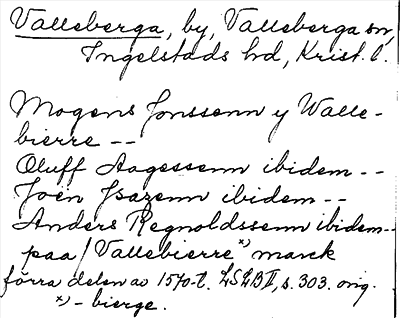 Valleberga, by, Valleberga sn,
Ingelstads hd, Krist. l.
Mogens Jonssenn y Walle-
bierre --
Oluff Aagessenn ibidem --
Joen Ibidem --
Anders Regnoldssenn ibidem--
paa Vallebierre *) marck
förra delen av 1570-t. LSLB II, s. 303. orig.
*) - bierge.